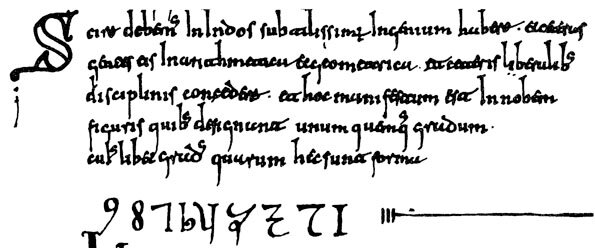 Scire debem' In Indos subtilissimū Ingenium habere. et ceteras
gentes eis In arithmetica et geometrica. et ceteris liberalib'
disciplinis concedere. et hoc manifestum est In nobem
figuris quib' designant unum quemq' gradum.
cui'libet grad' quarum hec sunt forma
9 8 7 6 5 4 3 2 1